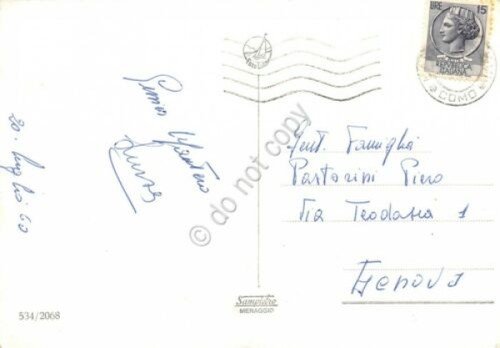 LIRE 15
REPUBBLICA
ITALIANA
COMO
20. luglio 60
Gent. Famiglia
Pastorini Piero
Via Teodosia 1
Genova
© do not copy
Sampietro
MENAGGIO
534/2068